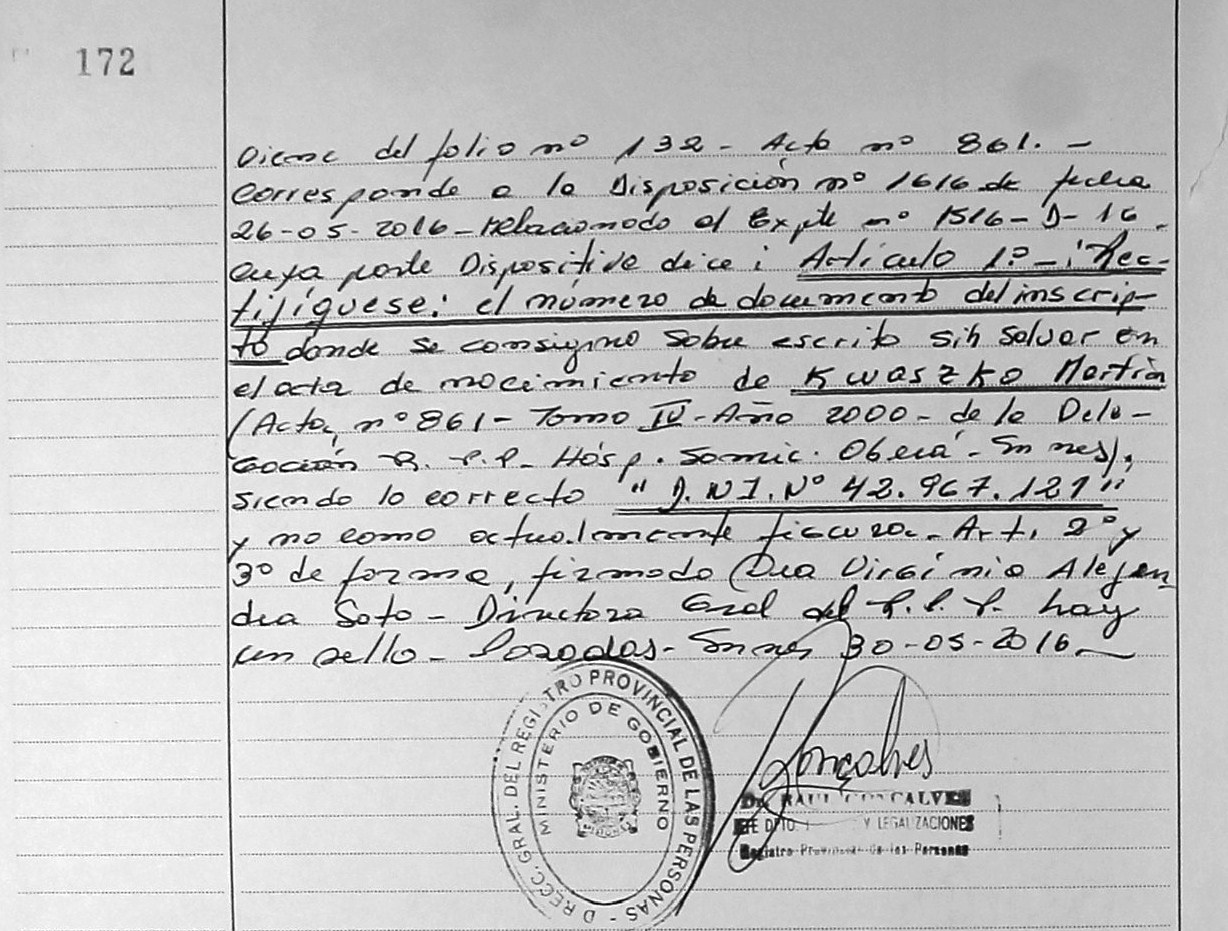 172
Viene del folio nº 132 - Acta nº 861. -
Corresponde a la Disposición nº 1616 de fecha
26-05-2016 - relacionado al Expte nº 1516-D-16.
cuya parte Dispositiva dice: Artículo 1º -: Rec-
tifíquese: el número de documento del inscrip-
to donde se consigno sobre escrito sin salvar en
el acta de nacimiento de KWASZKO Martin
(Acta, nº 861 - Tomo IV - Año 2000 - de la Dele-
gación R. P.P. Hosp. Samic. Oberá - Snnes),
siendo lo correcto "D.NI. Nº 42.967.121"
y no como actualmente figura. Art. 2º y
3º de forma, firmado Dra Virginia Alejan
dra Soto - Directora Gral del R.P.P. hay
un sello - Posadas - Snnes 30-05-2016 -
DIRECC. GRAL. DEL REGISTRO PROVINCIAL DE LAS PERSONAS -
MINISTERIO DE GOBIERNO
MISIONES
Gonçalves
Dr. RAUL GONCALVES
JEFE DPTO. Y LEGALIZACIONES
Registro Provincial de las Personas